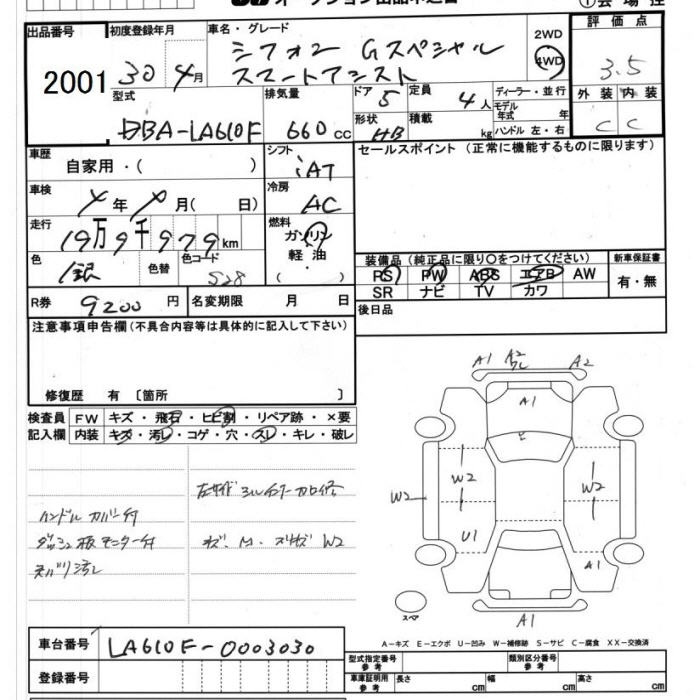 オークション出品申込書
①会場控
出品番号 2001
初度登録年月 30年4月
車名・グレード シフォン Gスペシャル
スマートアシスト
2WD
4WD
評価点 3.5
外装 内装
C C
型式 DBA-LA610F
排気量 660cc
ドア 5
形状 HB
定員 4人
積載 kg
ディーラー・並行
モデル年式 年
ハンドル 左・右
車歴 自家用・( )
シフト iAT
セールスポイント (正常に機能するものに限ります)
車検 年 月( 日)
冷房 AC
走行 19万9千979km
燃料 ガソリン
軽油
( )
色 銀
色替
色コード S28
装備品 (純正品に限り○をつけてください)
新車保証書
PS PW ABS エアB AW
SR ナビ TV カワ
有・無
R券 9200円
名変期限 月 日
後日品
注意事項申告欄(不具合内容等は具体的に記入して下さい)
修復歴 有 〔箇所 〕
検査員 FW キズ・飛石・ヒビ割・リペア跡・×要
記入欄 内装 キズ・汚レ・コゲ・穴・スレ・キレ・破レ
ハンドルカバー付
ダッシュ板モニター付
W2
A1 A2 A2
A1
ヒ
W2 W2 W2
U1 A1
スペア
A1
A-キズ E-エクボ U-凹み W-補修跡 S-サビ C-腐食 XX-交換済
車台番号 LA610F-0003030
登録番号
型式指定番号 参考
類別区分番号 参考
車庫証明用 参考 長さ cm 幅 cm 高さ cm